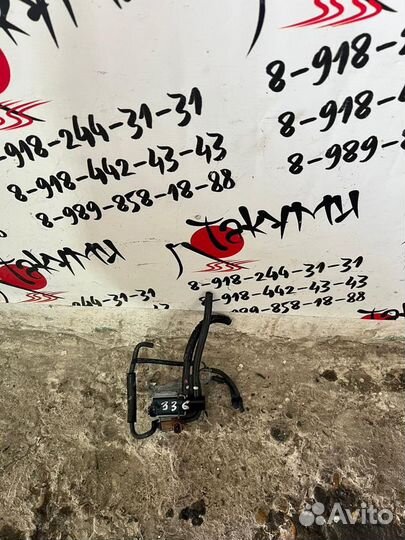 8-918-2
8-918-4
8-989-8
-918-244-31-31
8-918-442-43-43
8-989-858-18-88
Такуми
8-918-244-31-31
8-918-442-43-43
-989-858-18-88
-244-31-31
336
Avito